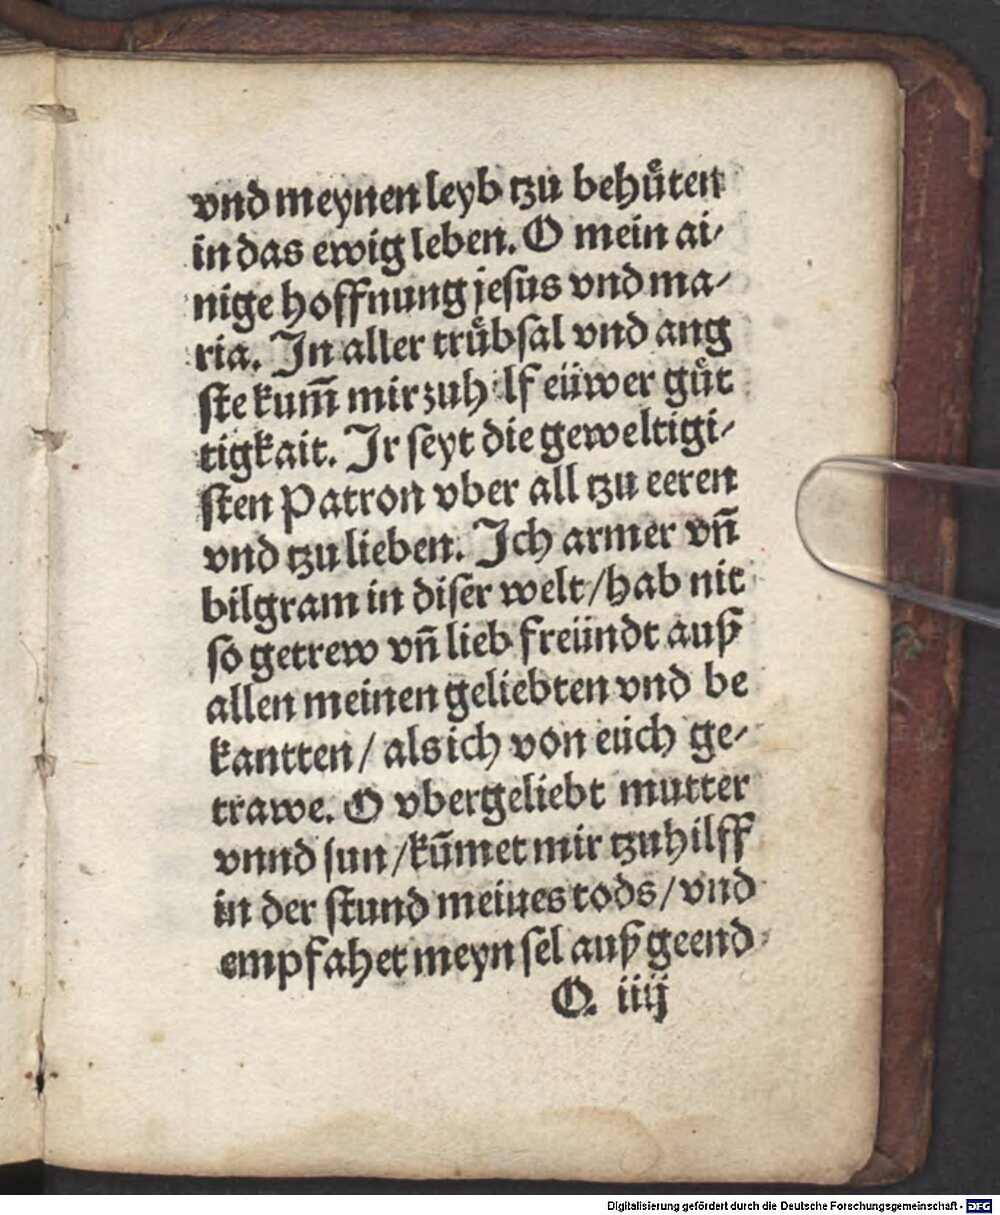 vnd meynen leyb tzu behuͤten
in das ewig leben. O mein ai⸗
nige hoffnung jesus vnd ma⸗
ria. In aller truͤbsal vnd ang
ste kum̄ mir zuh lf eüwer guͤt
tigkait. Ir seyt die geweltigi⸗
sten Patron vber all tzu eeren
vnd tzu lieben. Ich armer vn̄
bilgram in diser welt / hab nit
so getrew vn̄ lieb freündt auß
allen meinen geliebten vnd be
kantten / als ich von eüch ge⸗
trawe. O vbergeliebt mutter
vnnd sun / kūmet mir tzu hilff
in der stund meines tods / vnd
empfahet meyn sel auß geend
O. iiij
Digitalisierung gefördert durch die Deutsche Forschungsgemeinschaft - DFG